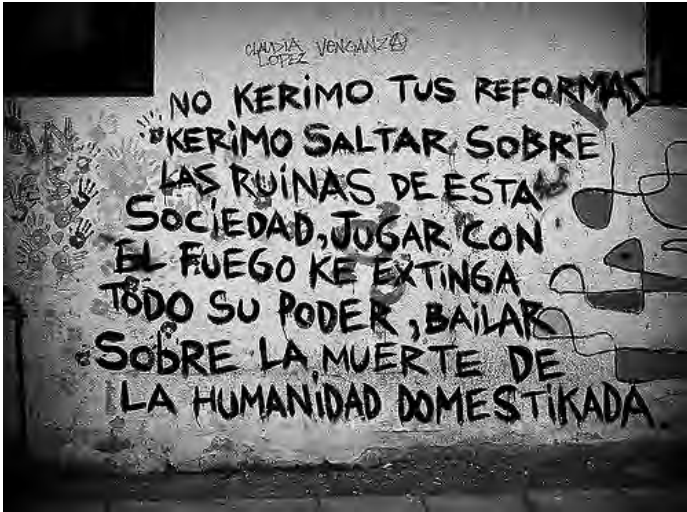 CLAUDIA VENGANZA
LOPEZ
NO KERIMO TUS REFORMAS
KERIMO SALTAR SOBRE
LAS RUINAS DE ESTA
SOCIEDAD, JUGAR CON
EL FUEGO KE EXTINGA
TODO SU PODER, BAILAR
SOBRE LA MUERTE DE
LA HUMANIDAD DOMESTIKADA.